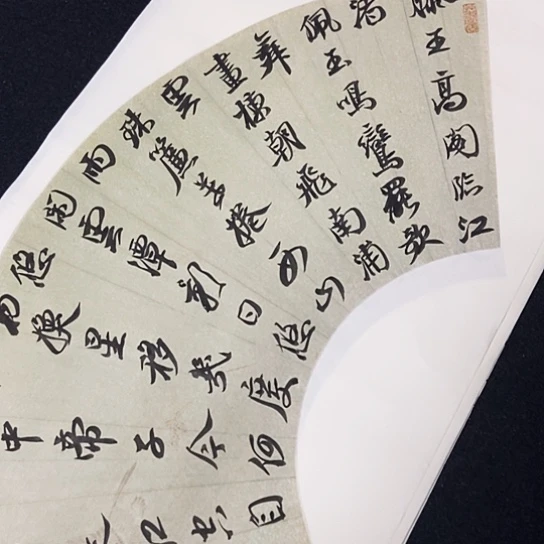 滕王高閣臨江
渚
佩玉鳴鸞罷歌
舞
畫棟朝飛南浦
雲
珠簾暮捲西山
雨
閒雲潭影日悠
悠
物換星移幾度
中帝子今何
江空自